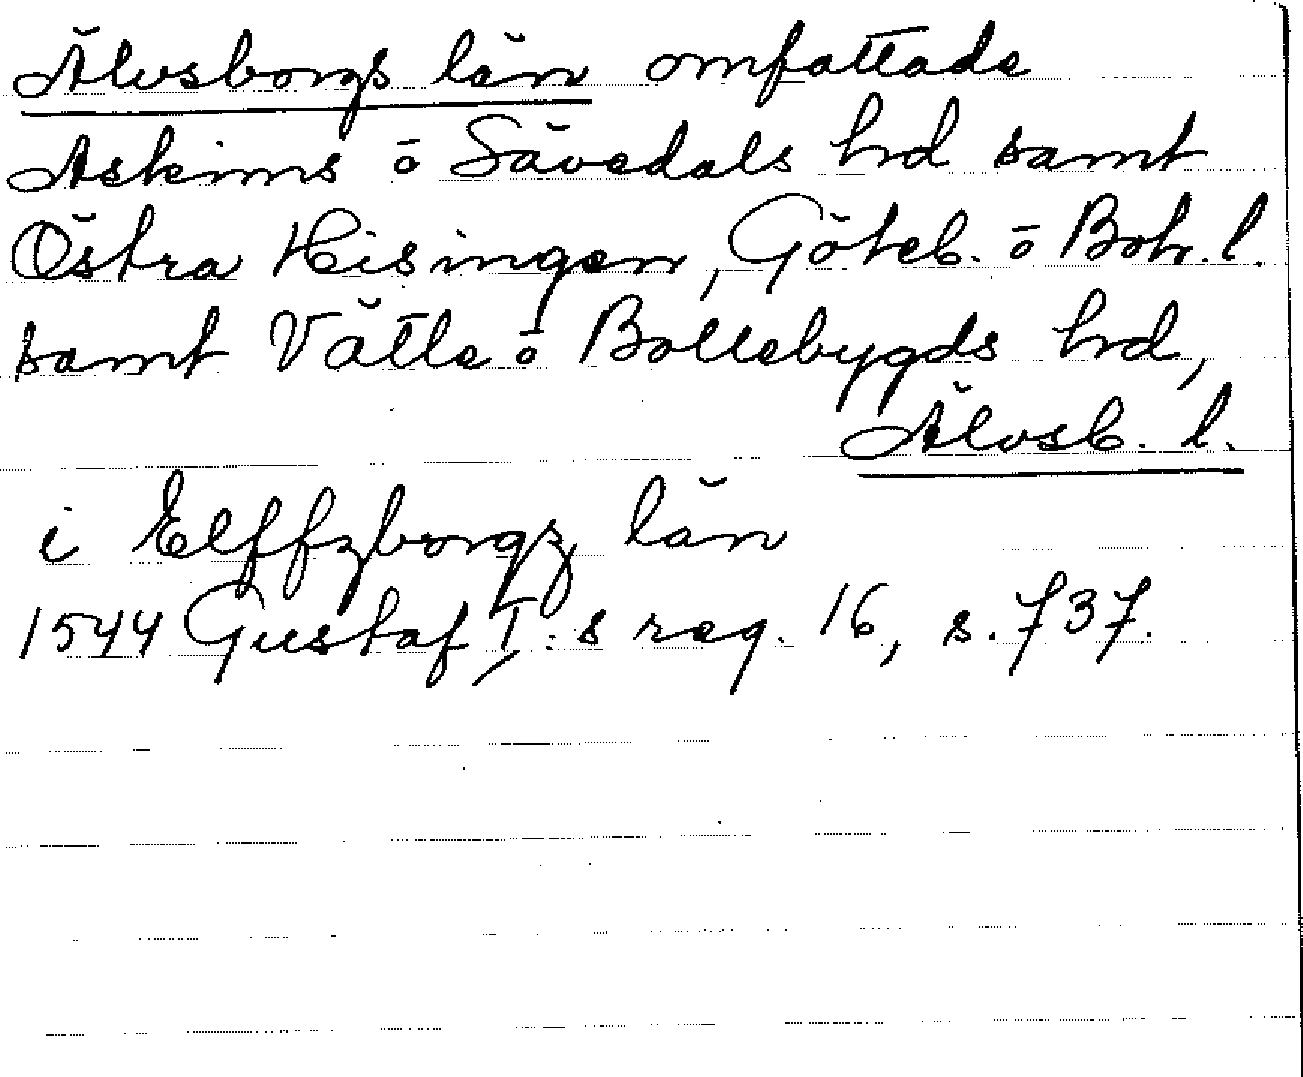 Älvsborgs län omfattade
Askims o Sävedals hrd samt
Östra Hisingen, Göteb. o Boh. l.
samt Vätle o Bollebygds hrd,
Älvsb. l.
i Elffzborgz län
1544 Gustaf I:s reg. 16, s. 737.